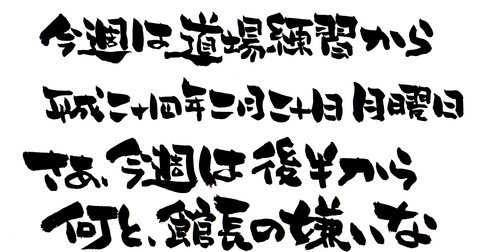 今週は道場練習から
平成二十四年二月二十日 月曜日
さあ、今週は後半から
何と、館長の嫌いな